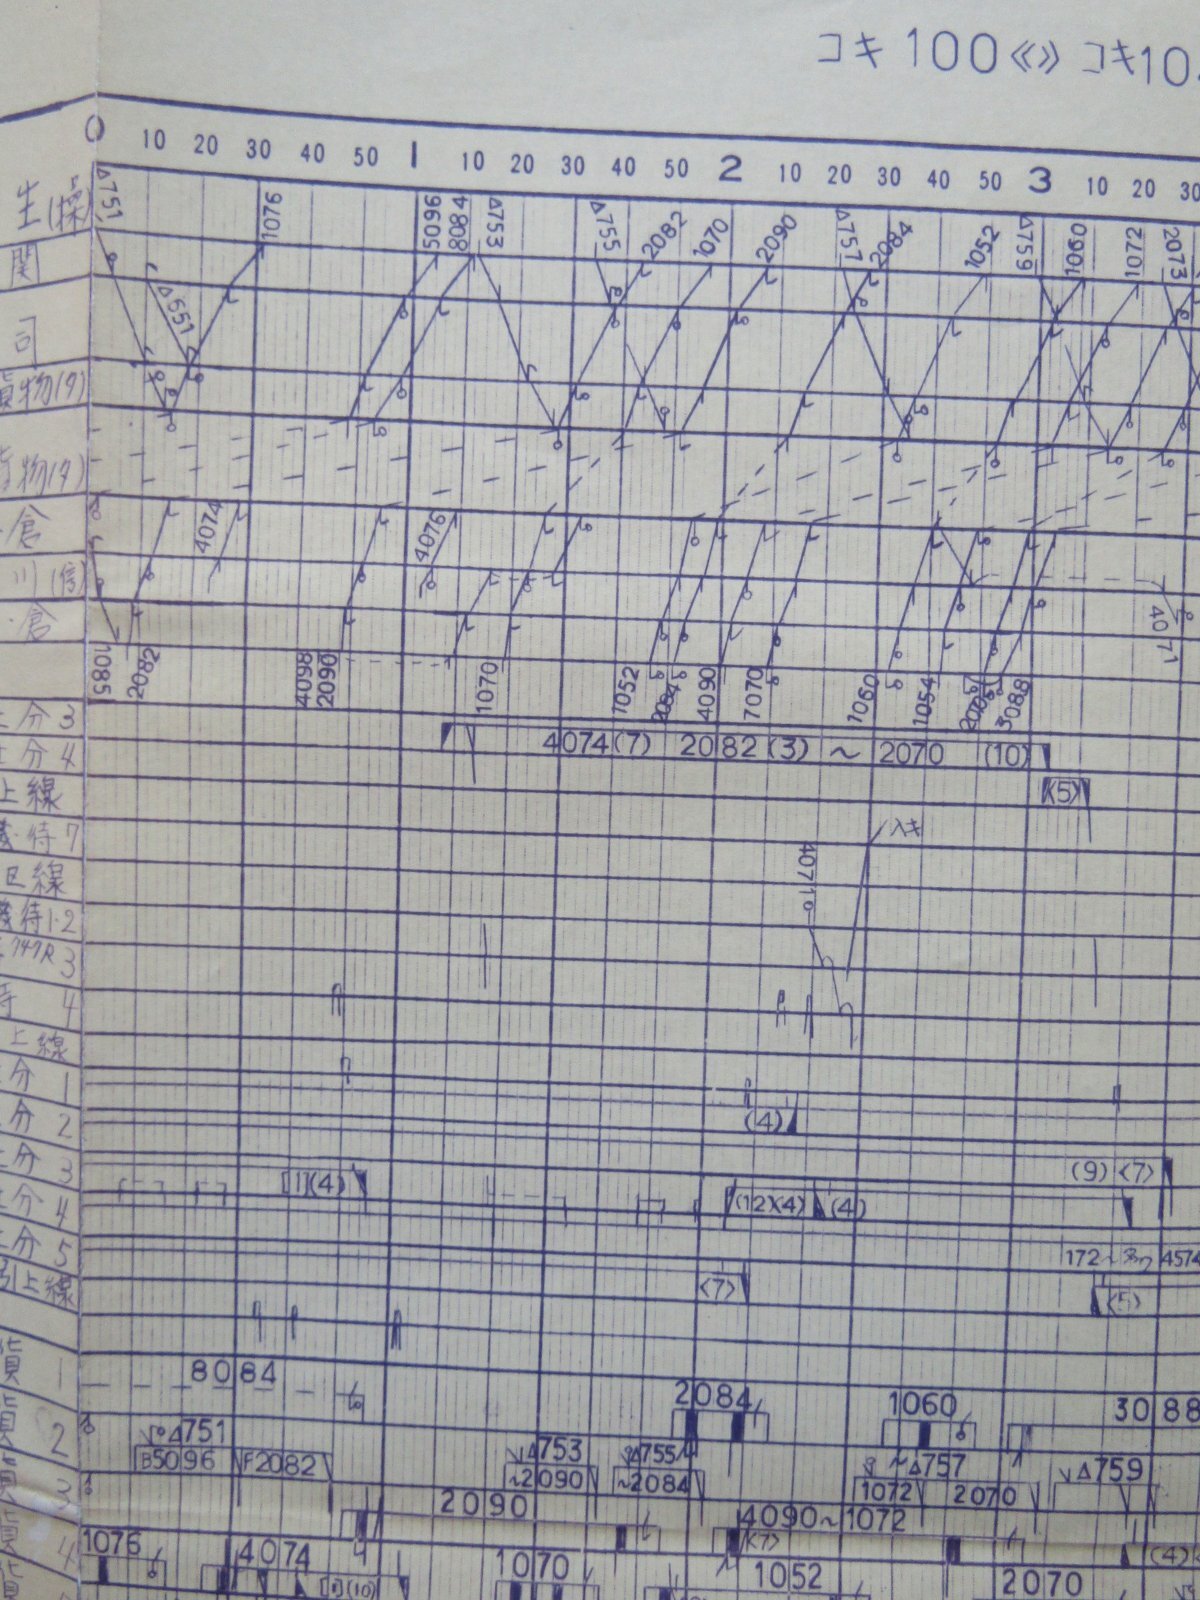 コキ100《》コキ10
0 10 20 30 40 50 1 10 20 30 40 50 2 10 20 30 40 50 3 10 20 30
生(操)
Δ751 1076 5096 8084 Δ753 Δ755 2082 1070 2090 Δ757 2084 1052 Δ759 1060 1072 2073
関
Δ551
司
貨物(タ)
物(タ)
倉 4074 4076
川(信)
倉 4071
1085 2082 4098 2090 1070 1052 2084 4090 7070 1060 1054 3088
分3
分4 4074(7) 2082(3) ~ 2070 (10)
上線 (5)
待7 入キ
線 4071
待1·2
3
4
上線
分1
分2 (4)
分3 (9)<7>
分4 [1](4) (12)(4) (4)
分5 172~ 4574
引上線 <7> <5>
貨1 8084 2084 1060 3088
貨2 Δ751 Δ753 Δ755 ~Δ757 Δ759
B5096 F2082 ~2090 ~2084 1072 2070
3 2090 4090~1072
<7>
4 1076 4074 1070 1052 2070 (4)
(10)